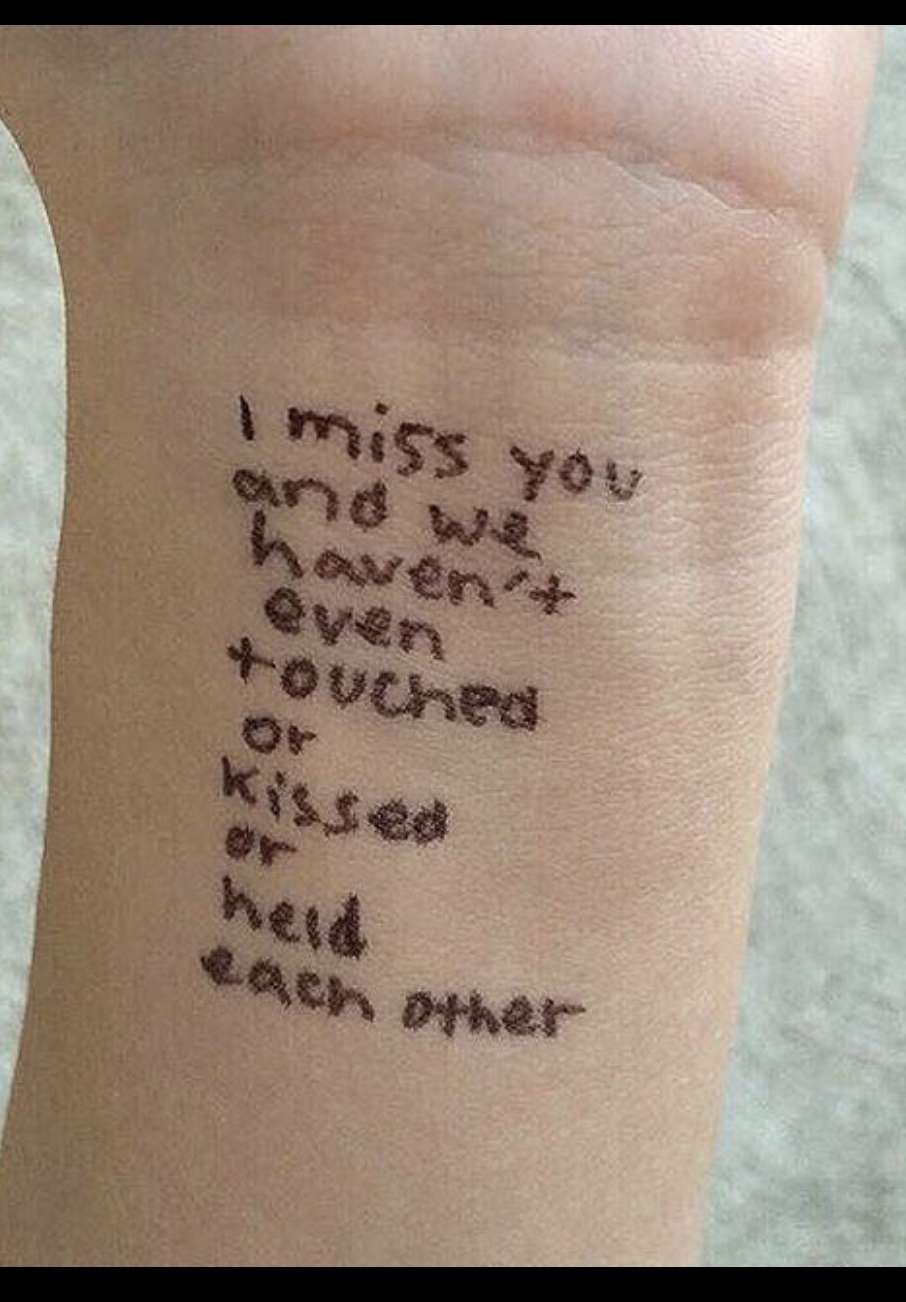 I miss you
and we
haven't
even
touched
or
kissed
or
held
each other